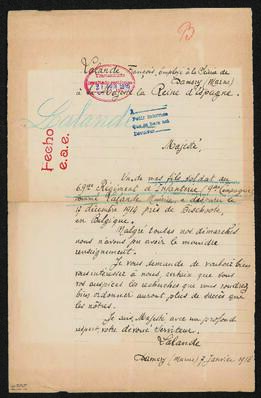 Lalande François, employé à la Mairie de
Damery (Marne)
à Sa Majesté la Reine d'Espagne.
Lalande
Fecho
e.a.e.
Majesté,
Un de mes fils soldat au
69me Régiment d'Infanterie, 9me Compagnie
nommé Lalande Maurice a disparu le
17 décembre 1914 près de
en Belgique.
Malgré toutes nos démarches
nous n'avons pu avoir le moindre
renseignement.
Je vous demande de vouloir bien
vous intéresser à nous, certain que sous
vos auspices les recherches que vous voudrez
bien ordonner auront plus de succès que
les nôtres.
Je suis, Majesté avec un profond
respect votre dévoué serviteur.
Lalande
Damery (Marne) 7 Janvier 1916